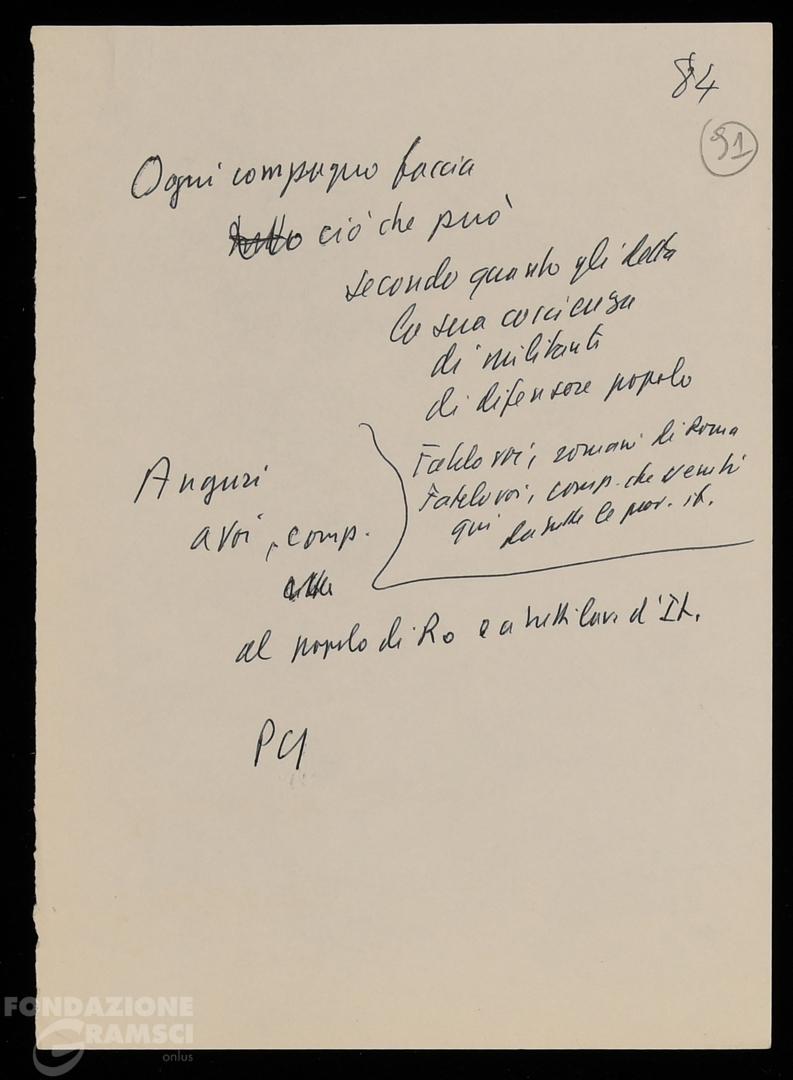 84
91
Ogni compagno faccia
tutto ciò che può
secondo quanto gli detta
la sua coscienza
di militanti
di difensore popolo
Fatelo voi, romani di Roma
Fatelo voi, comp. che venuti
qui da tutte le prov. it.
Auguri
a voi, comp.
al popolo di Ro e a tutti lav. d'It.
PCI
FONDAZIONE
GRAMSCI
onlus